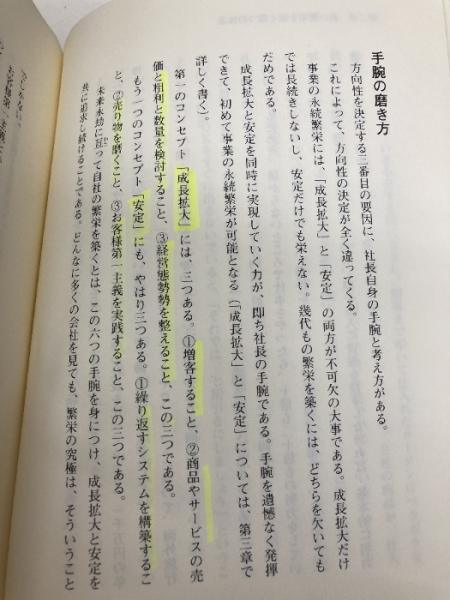 手腕の磨き方
方向性を決定する三番目の要因に、社長自身の手腕と考え方がある。
これによって、方向性の決定が全く違ってくる。
事業の永続繁栄には、「成長拡大」と「安定」の両方が不可欠の大事である。成長拡大だけ
では長続きしないし、安定だけでも栄えない。幾代もの繁栄を築くには、どちらを欠いても
だめである。
成長拡大と安定を同時に実現していく力が、即ち社長の手腕である。手腕を遺憾なく発揮
できて、初めて事業の永続繁栄が可能となる(「成長拡大」と「安定」については、第三章で
詳しく書く)。
第一のコンセプト「成長拡大」には、三つある。①増客すること、②商品やサービスの売
価と粗利と数量を検討すること、③経営態勢勢を整えること、この三つである。
もう一つのコンセプト「安定」にも、やはり三つある。①繰り返すシステムを構築するこ
と、②売り物を磨くこと、③お客様第一主義を実践すること、この三つである。
未来永劫に亘って自社の繁栄を築くとは、この六つの手腕を身につけ、成長拡大と安定を
共に追求し続けることである。どんなに多くの会社を見ても、繁栄の究極は、そういうこと